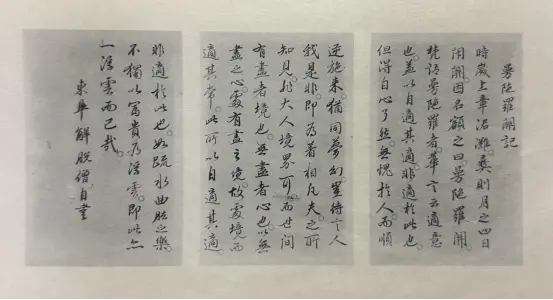 曼陀羅閣記
時歲上章涒灘彝則月之四日
閣開因名額之曰曼陀羅閣
梵語曼陀羅者華言云適意
也蓋以自適其適非適於此也
但得自心了然無愧於人而順
逆施来猶同夢幻待之人
我是非即為著相凡夫之所
知見非大人境界可而世間
有盡者境也無盡者心也以無
盡之心處有盡之境故處境而
適其常此所以自適其適
非適於此也如疏水曲肱之樂
不獨以富貴為浮雲即此亦
一浮雲而已哉
東華解脫僧自書